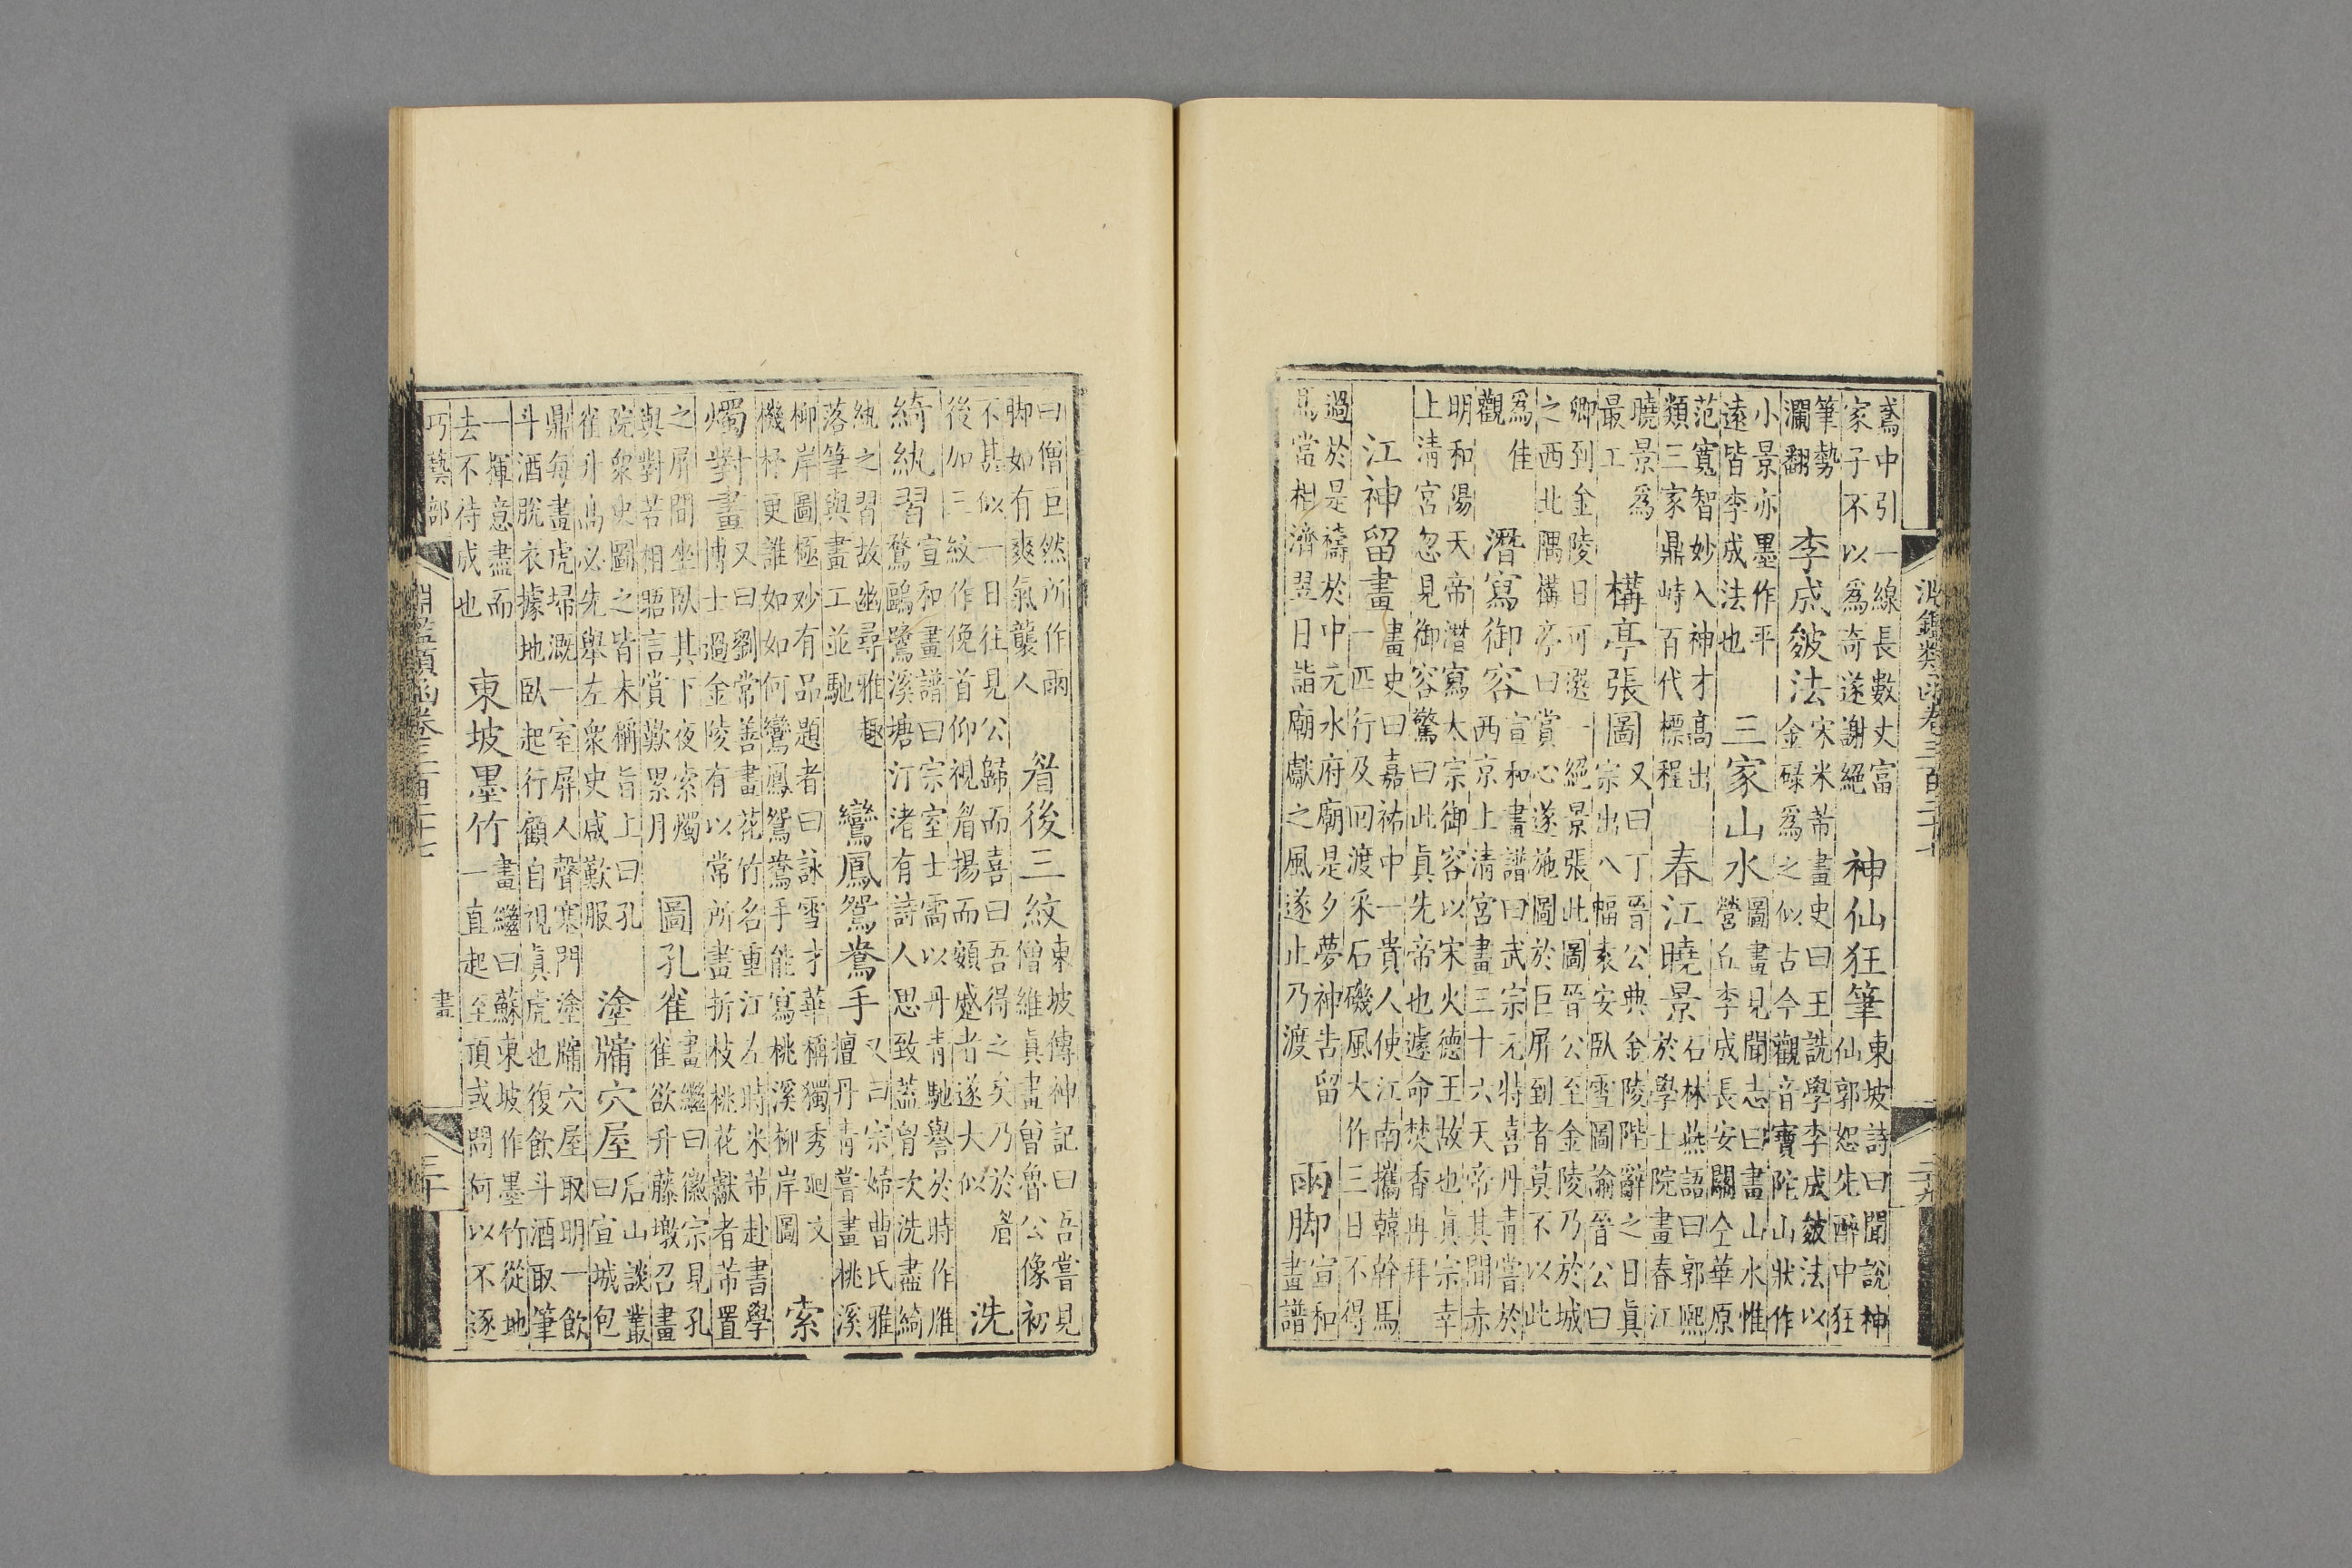 淵鑑類函卷三百二十七
鳶中引一線長數丈富
家子不以為奇遂謝絕
神仙狂筆
東坡詩曰聞說神
仙郭恕先醉中狂
筆勢
瀾翻
李成皴法
宋米芾畫史曰王詵學李成皴法以
金碌為之似古今觀音寶陀山狀作
小景亦墨作平
遠皆李成法也
三家山水
圖畫見聞志曰畫山水惟
營丘李成長安關仝華原
范寬智妙入神才高出
類三家鼎峙百代標程
春江曉景
石林燕語曰郭熙
於學士院畫春江
曉景為
最工
構亭張圖
又曰丁晉公典金陵陛辭之日真
宗出八幅袁安臥雪圖諭晉公曰
卿到金陵日可選一絕景張此圖晉公至金陵乃於城
之西北隅構亭曰賞心遂施圖於巨屏到者莫不以此
為佳
觀
潛寫御容
宣和畫譜曰武宗元特喜丹青嘗於
西京上清宮畫三十六天帝其間赤
明和陽天帝潛寫太宗御容以宋火德王故也真宗幸
上清宮忽見御容驚曰此真先帝也遽命焚香再拜
江神留畫
畫史曰嘉祐中一貴人使江南攜韓幹馬
一匹行及回渡采石磯風大作三日不得
過於是禱於中元水府廟是夕夢神告留
馬當相濟翌日詣廟獻之風遂止乃渡
雨脚
宣和
畫譜
曰僧巨然所作雨
脚如有爽氣襲人
眉後三紋
東坡傳神記曰吾嘗見
僧維真畫曾魯公像初
不甚似一日往見公歸而喜曰吾得之矣乃於眉
後加三紋作俛首仰視眉揚而頞蹙者遂大似
洗
綺紈習
宣和畫譜曰宗室士雷以丹青馳譽於時作雁
鶩鷗鷺溪塘汀渚有詩人思致蓋胄次洗盡綺
紈之習故幽尋雅趣
落筆與畫工並馳
鸞鳳鴛鴦手
又曰宗婦曹氏雅
擅丹青嘗畫桃溪
柳岸圖極妙有品題者曰詠雪才華稱獨秀廻文
機杼更誰如如何鸞鳳鴛鴦手能寫桃溪柳岸圖
索
燭對畫
又曰劉常善畫花竹名重江左時米芾赴書學
博士過金陵有以常所畫折枝桃花獻者芾置
之屏間坐臥其下夜索燭
與對若相晤言賞歎累月
圖孔雀
畫繼曰徽宗見孔
雀欲升藤墩召畫
院衆史圖之皆未稱旨上曰孔
雀升高必先舉左衆史咸歎服
塗牖穴屋
后山談叢
曰宣城包
鼎每畫虎埽溉一室屏人聲塞門塗牖穴屋取明一飲
斗酒脫衣據地臥起行顧自視真虎也復飲斗酒取筆
一揮意盡而
去不待成也
東坡墨竹
畫繼曰蘇東坡作墨竹從地
一直起至頂或問何以不逐
巧藝部
畫